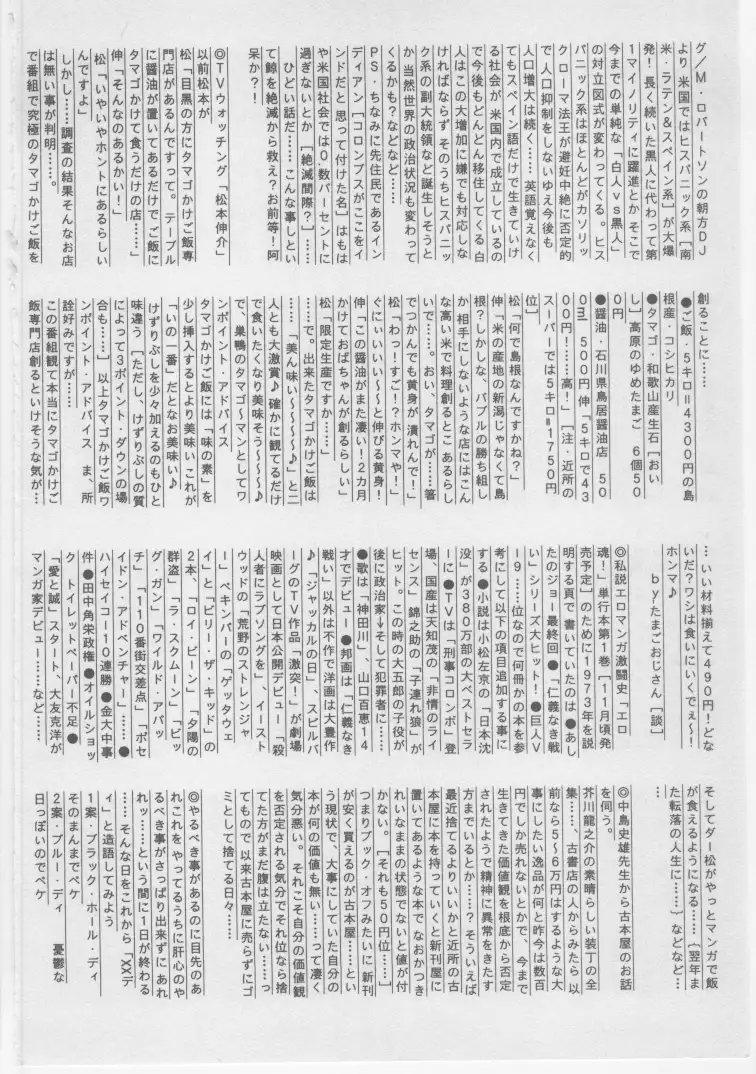 グ／M・ロバートソンの朝方DJ
より 米国ではヒスパニック系［南
米・ラテン&スペイン系］が大爆
発！長く続いた黒人に代わって第
1マイノリティに躍進とか そこで
今までの単純な「白人vs黒人」
の対立図式が変わってくる。ヒス
パニック系はほとんどがカソリッ
クローマ法王が避妊中絶に否定的
で人口抑制をしないゆえ今後も
人口増大は続く……英語覚えなく
てもスペイン語だけで生きていけ
る社会が 米国内で成立しているの
で今後もどんどん移住してくる 白
人はこの大増加に嫌でも対応しな
ければならず そのうちヒスパニッ
ク系の副大統領など誕生しそうと
か 当然世界の政治状況も変わって
くるかも？などなど……
PS・ちなみに先住民であるイン
ディアン［コロンブスがここをイ
ンドだと思って付けた名］はもは
や米国社会では0・数パーセントに
過ぎないとか［絶滅間際？］……
ひどい話だ……こんな事しとい
て鯨を絶滅から救え？お前等！阿
呆か？！
◎TVウォッチング「松本伸介」
以前松本が
松「目黒の方にタマゴかけご飯専
門店があるんですって。テーブル
に醤油が置いてあるだけでご飯に
タマゴかけて食うだけの店……」
伸「そんなのあるかい！」
松「いやいやホントにあるらしい
んですよ」
しかし……調査の結果そんなお店
は無い事が判明……。
で番組で究極のタマゴかけご飯を
創ることに……
●ご飯・5キロ＝4300円の島
根産・コシヒカリ
●タマゴ・和歌山産生石［おい
し］高原のゆめたまご 6個50
0円
●醤油・石川県鳥居醤油店 50
0ml 500円 伸「5キロで43
00円！……高！」［注・近所の
スーパーでは5キロ＝1750円
位］
松「何で島根なんですかね？」
伸「米の産地の新潟じゃなくて島
根？しかしな、バブルの勝ち組し
か相手にしないような店にはこん
な高い米で料理創るとこあるらし
いで……。おい、タマゴが……箸
でつかんでも黄身が潰れんで！」
松「わっ！すご！？ホンマや！」
ぐにぃいいい～～と伸びる黄身！
伸「この醤油がまた凄い！2カ月
かけておばちゃんが創るらしい」
松「限定生産ですか……」
……で。出来たタマゴかけご飯は
……「美ん味い～～～～♪」と二
人とも大激賞♪ 確かに観てるだけ
で食いたくなり美味そう～～～♪
で、巣鴨のタマゴ～マンとしてワ
ンポイント・アドバイス
タマゴかけご飯には「味の素」を
少し挿入するとより美味い これが
「いの一番」だとなお美味い♪
けずりぶしを少々加えるのもひと
味違う［ただし、けずりぶしの質
によって3ポイント・ダウンの場
合も……］以上タマゴかけご飯ワ
ンポイント・アドバイス ま、所
詮好みですが……
この番組観て本当にタマゴかけご
飯専門店創るといけそうな気が…
…いい材料揃えて490円！どな
いだ？ワシは食いにいくでぇ～！
ホンマ♪
byたまごおじさん［談］
◎私説エロマンガ激闘史「エロ
魂！」単行本第1巻［11月頃発
売予定］のために1973年を説
明する頁で書いていたのは●あし
たのジョー最終回●「仁義なき戦
い」シリーズ大ヒット！●巨人V
ー9……位なので何冊かの本を参
考にして以下の項目追加する事に
する●小説は小松左京の「日本沈
没」が380万部の大ベストセラ
ーに●TVは「刑事コロンボ」登
場、国産は天知茂の「非情のライ
センス」錦之助の「子連れ狼」が
ヒット。この時の大五郎の子役が
後に政治家→そして犯罪者に……
●歌は「神田川」、山口百恵14
才でデビュー●邦画は「仁義なき
戦い」以外は不作で洋画は大豊作
♪「ジャッカルの日」、スピルバ
ーグのTV作品「激突！」が劇場
映画として日本公開デビュー「殺
人者にラプソングを」、イースト
ウッドの「荒野のストレンジャ
ー」ペキンパーの「ゲッタウェ
イ」と「ビリー・ザ・キッド」の
2本、「ロイ・ビーン」「夕陽の
群盗」「ラ・スクムーン」「ビッ
グ・ガン」「ワイルド・アパッ
チ」「110番街交差点」「ポセ
イドン・アドベンチャー」……●
ハイセイコー10連勝●金大中事
件●田中角栄政権●オイルショッ
ク トイレットペーパー不足●
「愛と誠」スタート、大友克洋が
マンガ家デビュー……など……
そしてダー松がやっとマンガで飯
が食えるようになる……｛翌年ま
た転落の人生に……｝などなど…
…
◎中島史雄先生から古本屋のお話
を伺う。
芥川龍之介の素晴らしい装丁の全
集……、古書店の人からみたら以
前なら5～6万円はするような大
事にしたい逸品が何と昨今は数百
円でしか売れないとかで、今まで
生きてきた価値観を根底から否定
されたようで精神に異常をきたす
方までいるとか……？そういえば
最近捨てるよりいいかと近所の古
本屋に本を持っていくと新刊屋に
置いてあるような本で なおかつき
れいなままの状態でないと値が付
かない。［それも50円位……］
つまりブック・オフみたいに 新刊
が安く買えるのが古本屋……とい
う現状で、大事にしていた自分の
本が何の価値も無い……って凄く
気分悪い。それこそ自分の価値観
を否定される気分でそれ位なら捨
てた方がまだ腹は立たない……っ
てもので 以来古本屋に売らずにゴ
ミとして捨てる日々……
◎やるべき事があるのに目先のあ
れこれを やってるうちに肝心のや
るべき事がさっぱり出来ずに あれ
れッ……という間に1日が終わる
……そんな日をこれから「XXデ
ィ」と造語してみよう
1案・ブラック・ホール・ディ
そのまんまでペケ
2案・ブルー・ディ 憂鬱な
日っぽいのでペケ